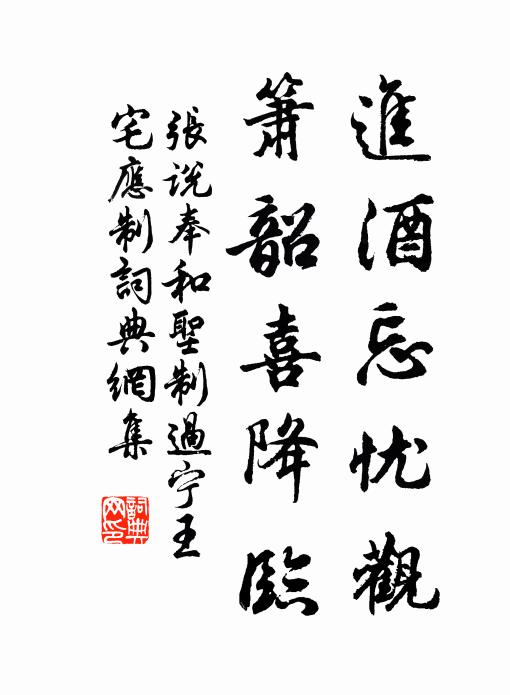 進酒忘忧觀
簫韶喜降臨
張說奉和聖制過宁王
宅應制詞典網集
詞典
网印